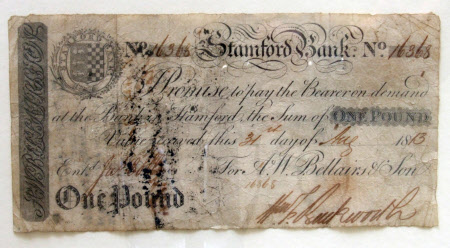 No. 16368 Stamford Bank. No. 16368
I Promise to pay the Bearer on demand
at the Bank in Stamford, the Sum of ONE POUND
Value received this 31st day of 1813
Entd. For A. W. Bellairs & Son
16368
One Pound